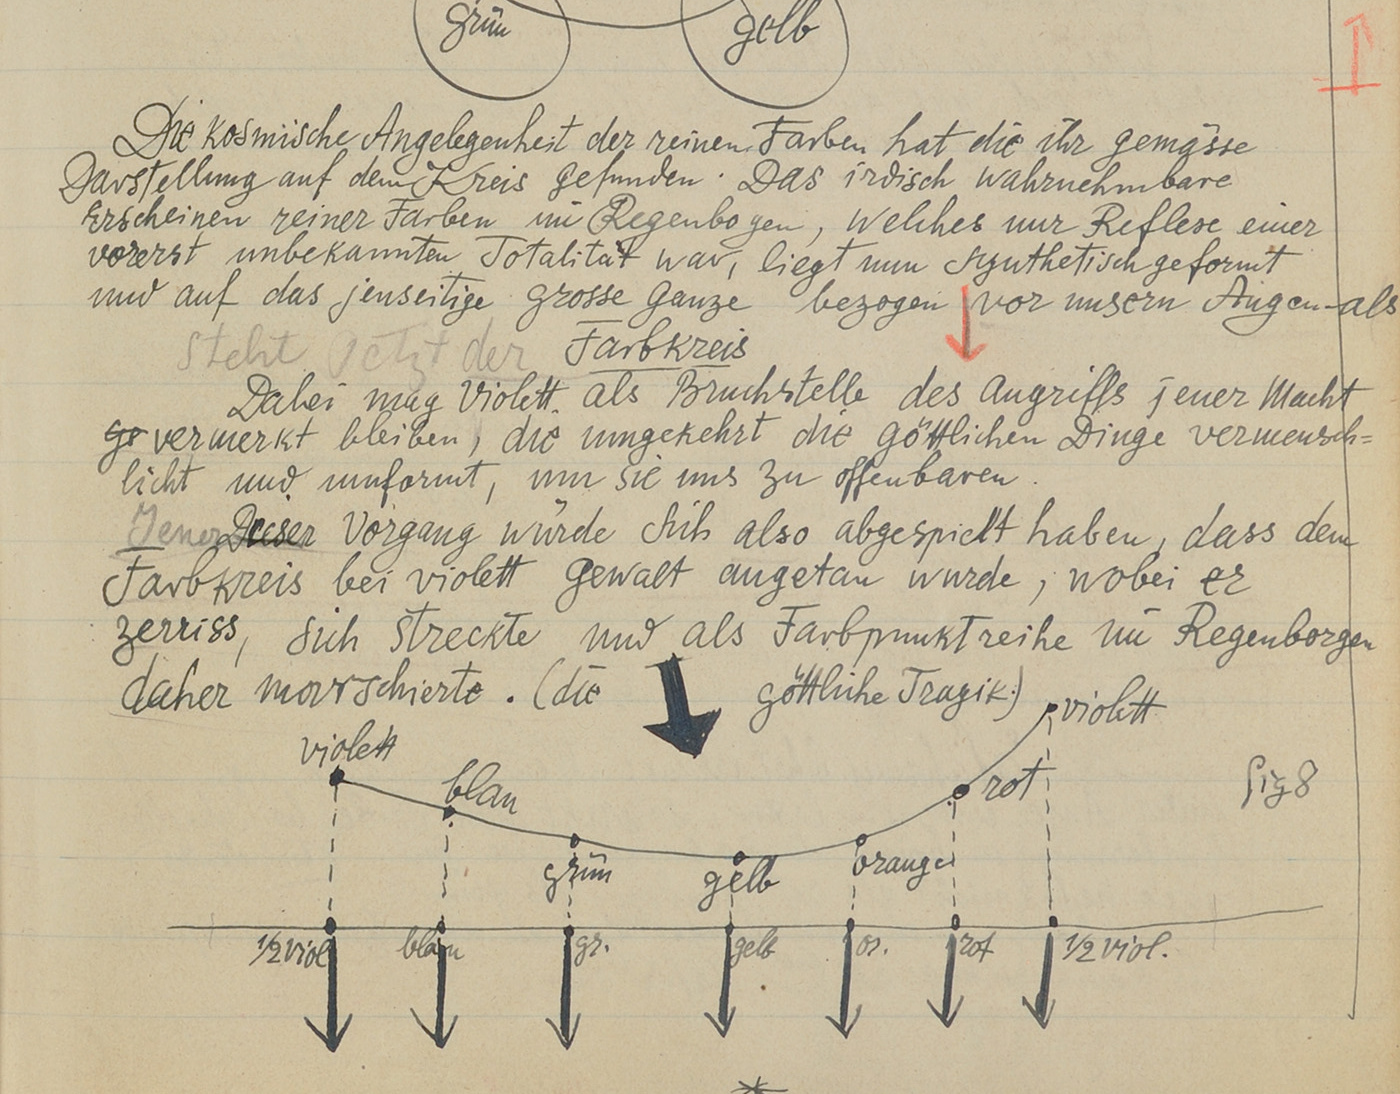 grün gelb
Die kosmische Angelegenheit der reinen Farben hat die ihr gemässe
Darstellung auf dem Kreis gefunden. Das irdisch wahrnehmbare
Erscheinen reiner Farben im Regenbogen, welches nur Reflexe einer
vorerst unbekannten Totalität war, liegt nun synthetisch geformt
und auf das jenseitige grosse Ganze bezogen vor unsern Augen als
steht jetzt der Farbkreis
Dabei mag Violett als Bruchstelle des Angriffs jener Macht
ge vermerkt bleiben, die umgekehrt die göttlichen Dinge vermensch=
licht und umformt, um sie uns zu offenbaren.
Jener Dieser Vorgang würde sich also abgespielt haben, dass dem
Farbkreis bei violett Gewalt angetan wurde, wobei er
zerriss, sich streckte und als Farbpunktreihe im Regenborgen
daher marrschierte. (die göttliche Tragik.)
violett
violett
blau
rot
fig 8
grün
gelb
orange
1/2 viol. blau gr. gelb or. rot 1/2 viol.